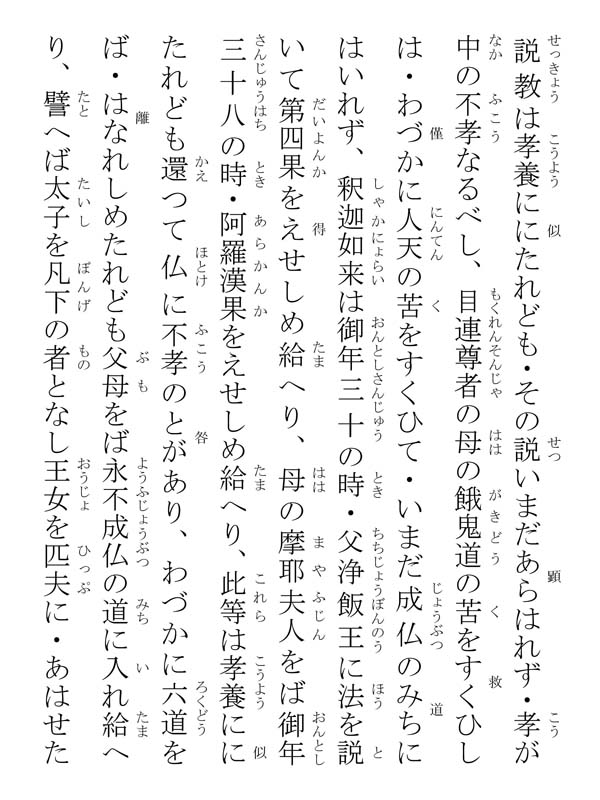 説教は孝養ににたれども・その説いまだあらはれず・孝が
中の不孝なるべし、目連尊者の母の餓鬼道の苦をすくひし
は・わづかに人天の苦をすくひて・いまだ成仏のみちに
はいれず、釈迦如来は御年三十の時・父浄飯王に法を説
いて第四果をえせしめ給へり、母の摩耶夫人をば御年
三十八の時・阿羅漢果をえせしめ給へり、此等は孝養にに
たれども還つて仏に不孝のとがあり、わづかに六道を
ば・はなれしめたれども父母をば永不成仏の道に入れ給へ
り、譬へば太子を凡下の者となし王女を匹夫に・あはせた